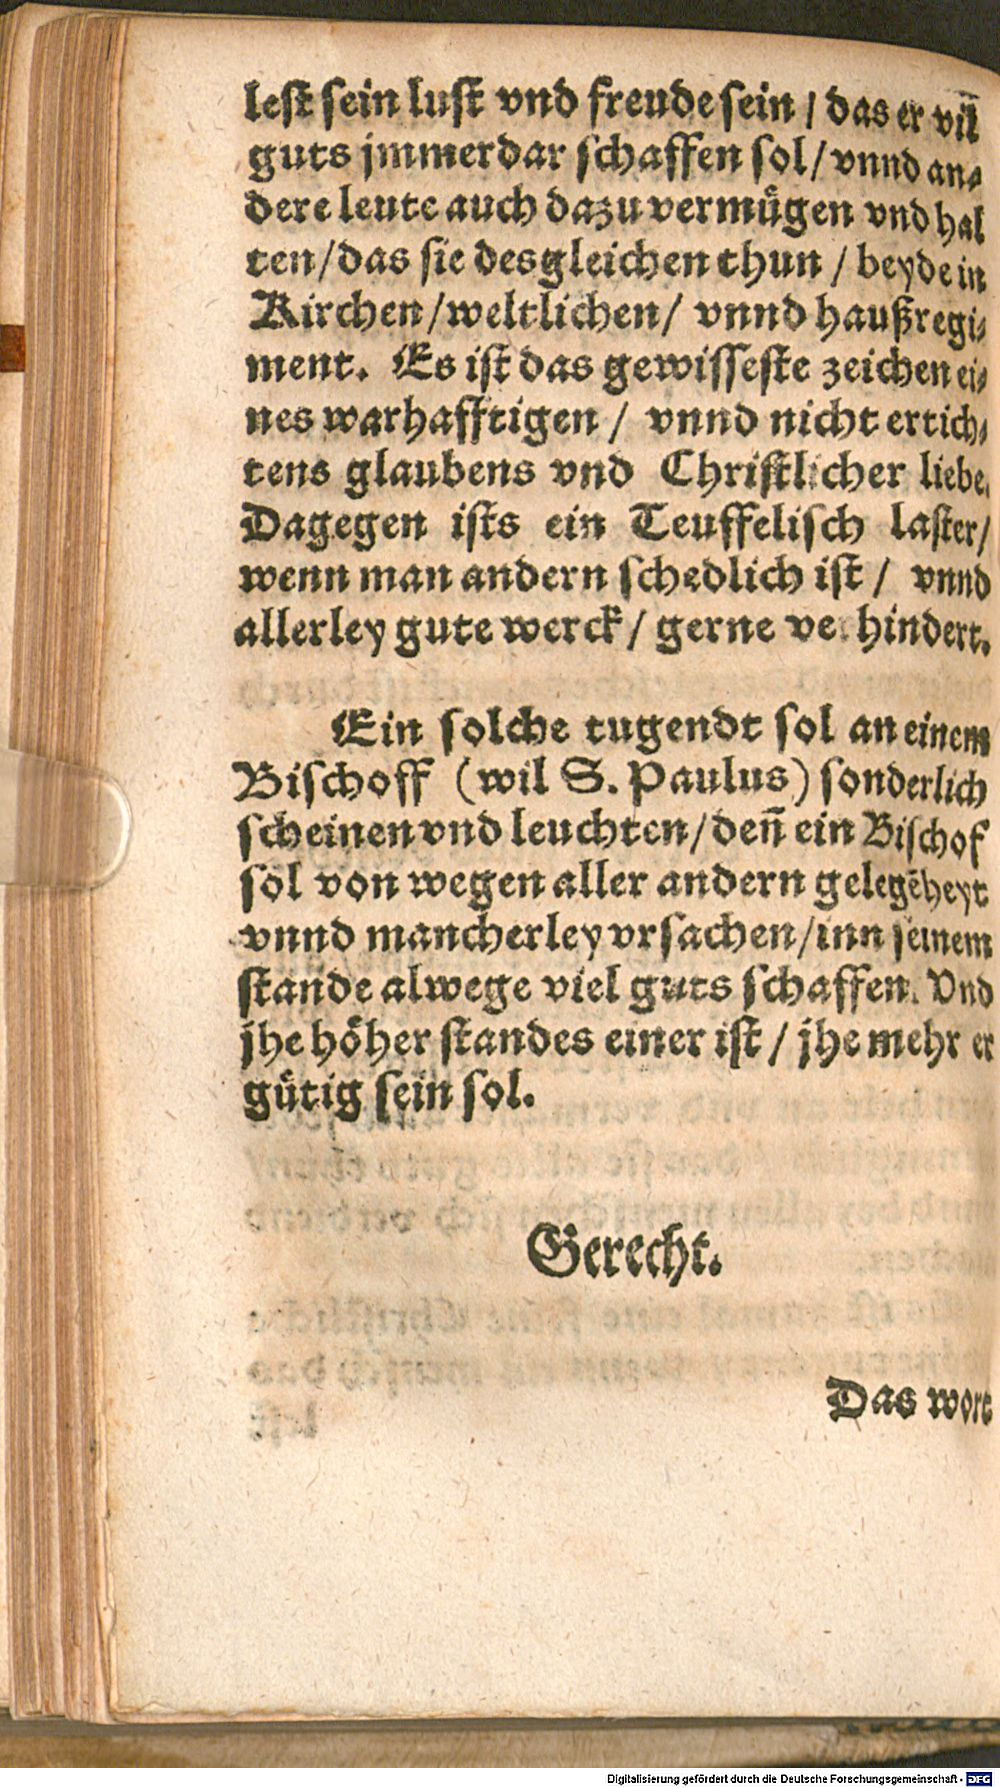 lest sein lust vnd freude sein / das er vil
guts jmmerdar schaffen sol / vnnd an⸗
dere leute auch dazu vermügen vnd hal
ten / das sie desgleichen thun / beyde in
Kirchen / weltlichen / vnnd haußregi⸗
ment. Es ist das gewisseste zeichen ei⸗
nes warhafftigen / vnnd nicht ertich⸗
tens glaubens vnd Christlicher liebe.
Dagegen ists ein Teuffelisch laster /
wenn man andern schedlich ist / vnnd
allerley gute werck / gerne verhindert.
Ein solche tugendt sol an einem
Bischoff (wil S. Paulus) sonderlich
scheinen vnd leuchten / deñ ein Bischof
sol von wegen aller andern gelegēheyt
vnnd mancherley vrsachen / inn seinem
stande alwege viel guts schaffen. Vnd
jhe höher standes einer ist / jhe mehr er
gütig sein sol.
Gerecht.
Das wort
Digitalisierung gefördert durch die Deutsche Forschungsgemeinschaft - DFG